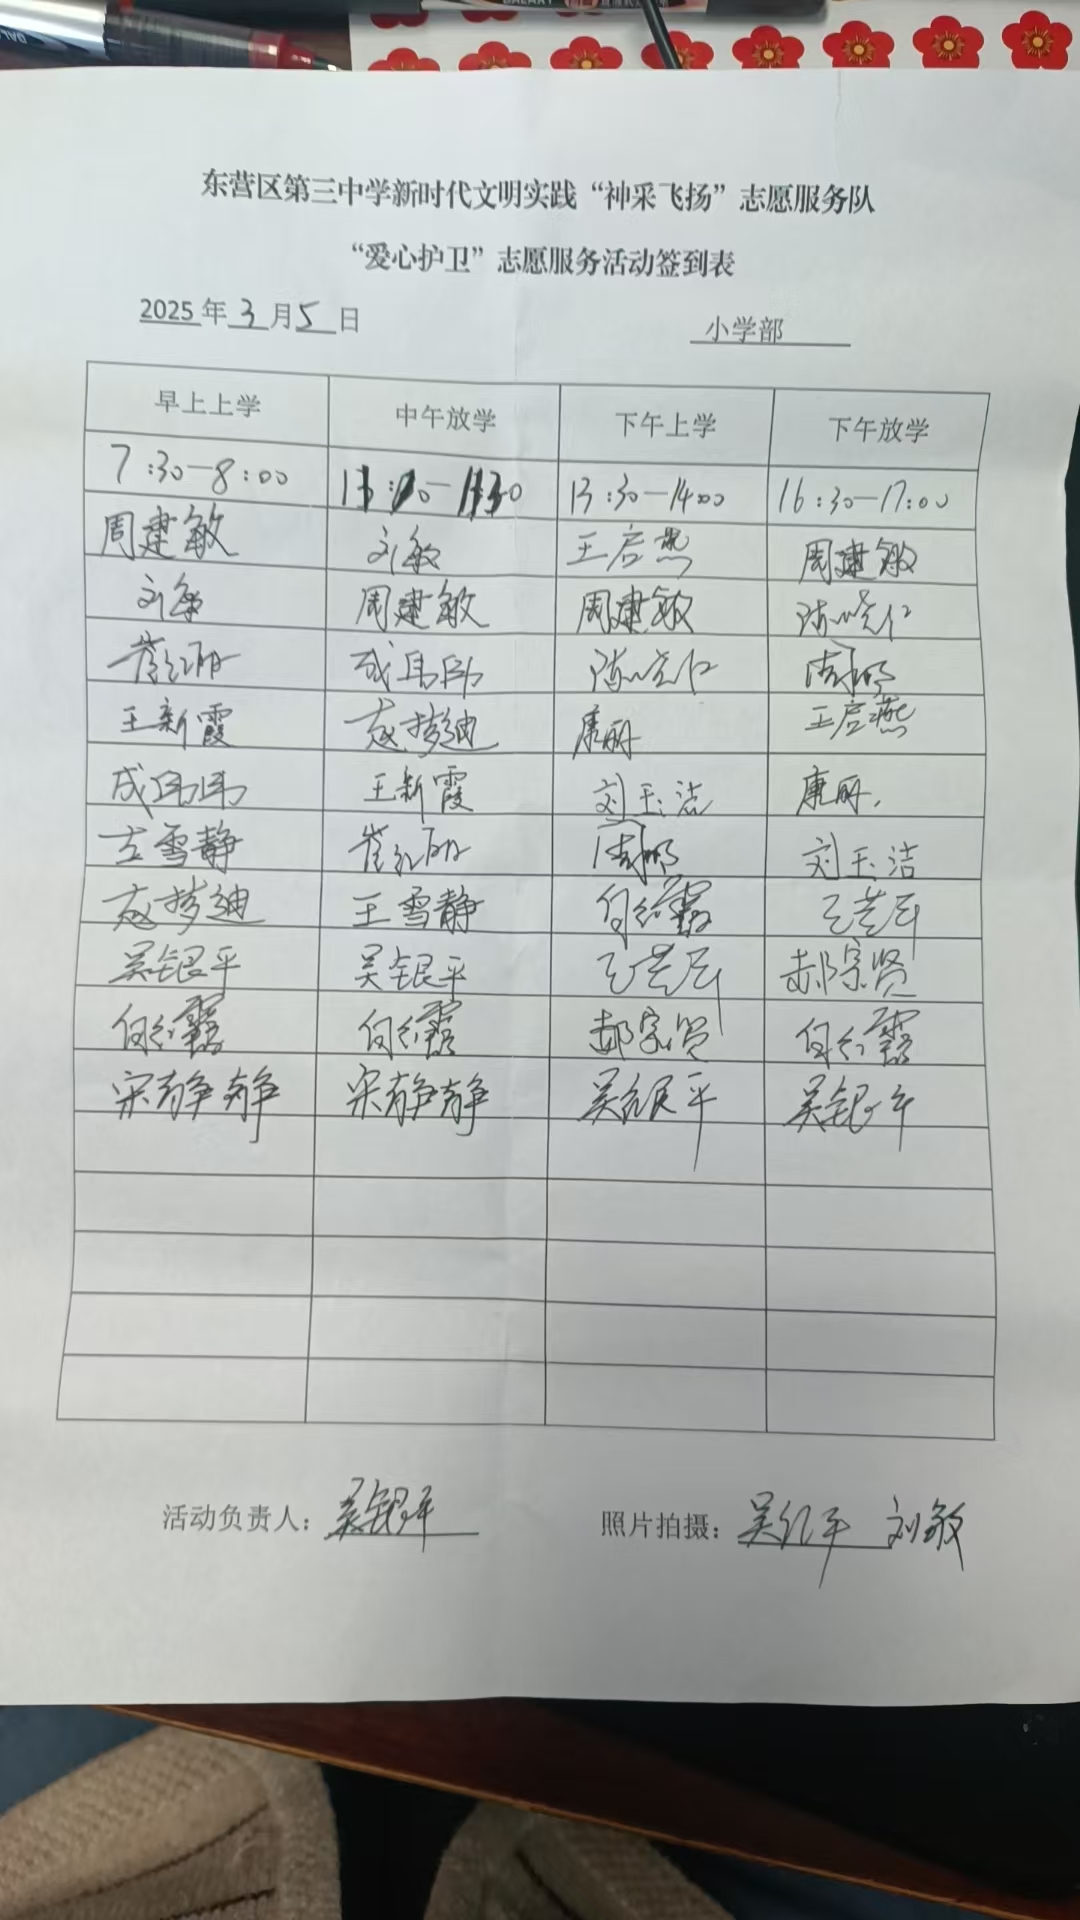 东营区第三中学新时代文明实践“神采飞扬”志愿服务队
“爱心护卫”志愿服务活动签到表
2025年3月5日 小学部
早上上学 中午放学 下午上学 下午放学
7:30—8:00 13:30—14:00 16:30—17:00
周建敏 刘敏 王启燕 周建敏
刘敏 周建敏 周建敏 陈晓仁
崔红丽 成伟伟 陈晓仁
王新霞 赵梦迪 康丽 王启燕
成伟伟 王新霞 刘玉洁 康丽
王雪静 崔红丽 刘玉洁
赵梦迪 王雪静
吴银平 吴银平 郝宗贤
郝宗贤
宋静静 宋静静 吴银平 吴银平
活动负责人：吴银平 照片拍摄：吴银平 刘敏